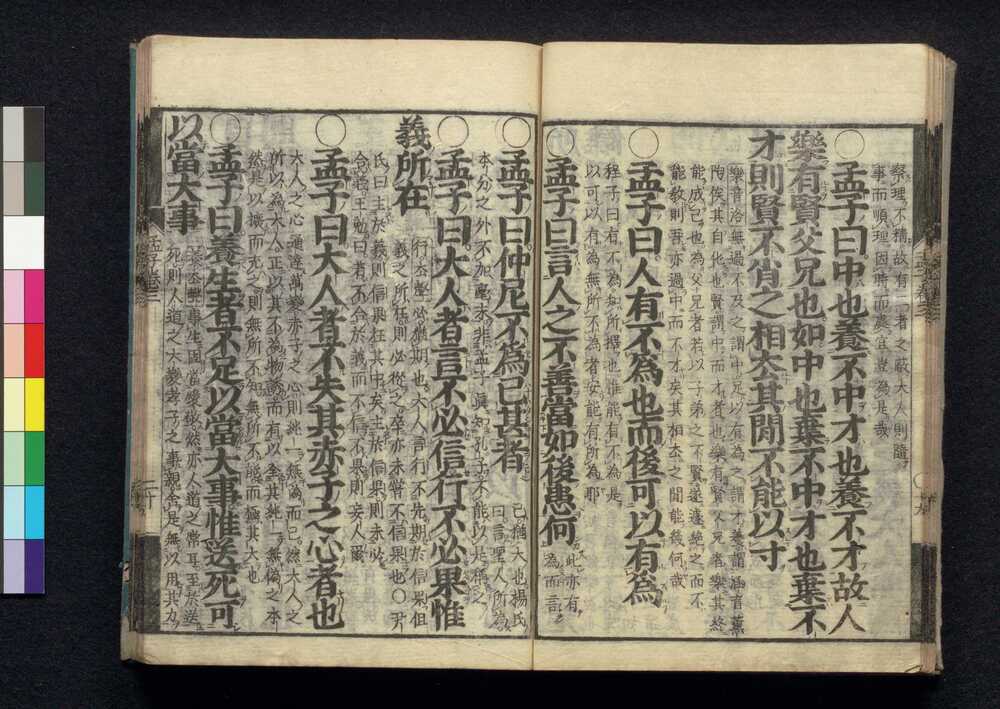 察理不精故有二者之蔽大人則隨
事而順理因時而處宜豈為是哉
○孟子曰中也養不中才也養不才故人
樂有賢父兄也如中也棄不中才也棄不
才則賢不肖之相去其間不能以寸
無過不及之謂中足以有為之謂才養謂涵育薰
陶俟其自化也賢謂中而才者也樂有賢父兄者樂其終
能成己也為父兄者若以子弟之不賢遂遽絶之而不
能教則吾亦過中而不才矣其相去之間能幾何哉
○孟子曰人有不為也而後可以有為
程子曰有不為知所擇也惟能有不為是
以可以有為無所不為者安能有所為耶
○孟子曰言人之不善當如後患何
此亦有
為而言
○孟子曰仲尼不為已甚者
已猶大也楊氏
曰言聖人所為
本分之外不加毫末非孟子真知孔子不能以是稱之
○孟子曰大人者言不必信行不必果惟
義所在
行去聲○必猶期也大人言行不先期於信果但
義之所在則必從之卒亦未嘗不信果也○尹
氏曰主於義則信果在其中矣主於信果則未必
合義王勉曰若不合於義而不信不果則妄人爾
○孟子曰大人者不失其赤子之心者也
大人之心通達萬變赤子之心則純一無偽而已然大人之
所以為大人正以其不為物誘而有以全其純一無偽之本
然是以擴而充之則無所不知無所不能而極其大也
○孟子曰養生者不足以當大事惟送死可
以當大事
養去聲○事生固當愛敬然亦人道之常耳至於送
死則人道之大變孝子之事親舍是無以用其力
孟子卷三
二十